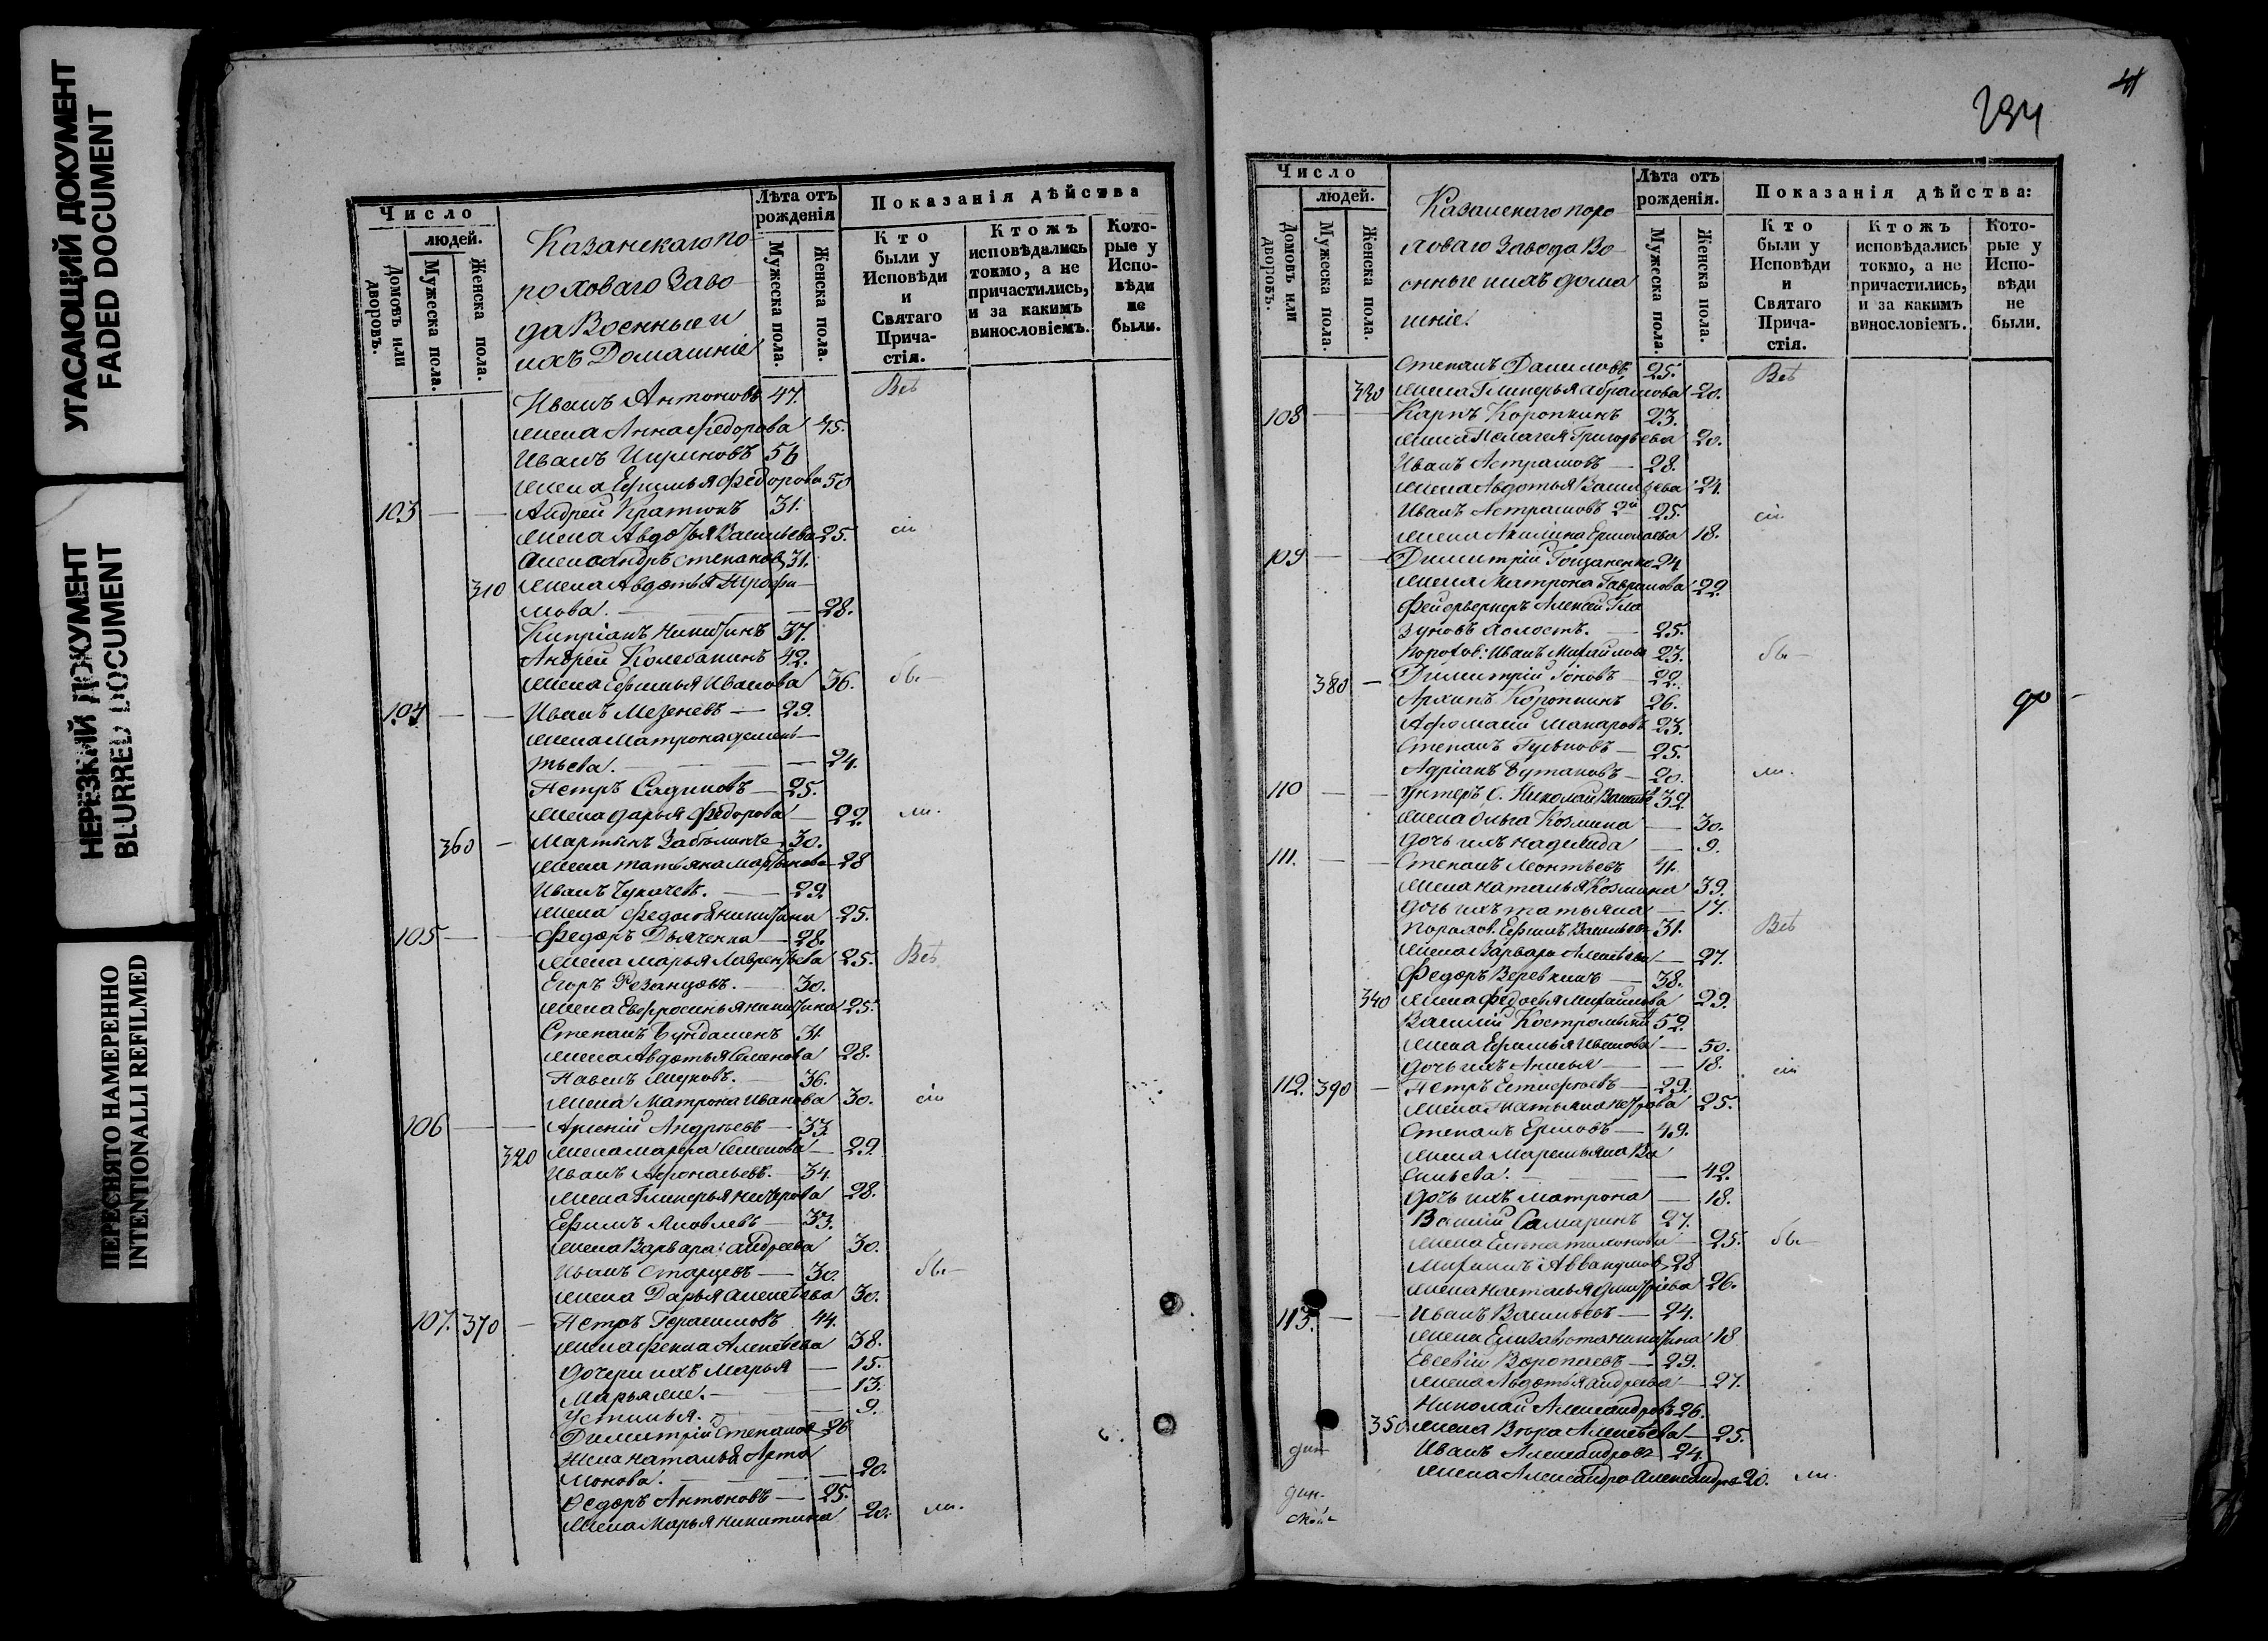 УГАСАЮЩИЙ ДОКУМЕНТ
FADED DOCUMENT
НЕРЕЗКИЙ ДОКУМЕНТ
BLURRED DOCUMENT
ПЕРЕСНЯТО НАМЕРЕННО
INTENTIONALLI REFILMED
Число
людей.
Домовъ или дворовъ.
Мужеска пола.
Женска пола.
Казанскаго по-
роховаго Заво
да Военные и
ихъ Домашніе
Лѣта отъ рожденія
Мужеска пола.
Женска пола.
Показанія дѣйства
Кто были у Исповѣди и Святаго Прича- стія.
Ктожъ исповѣдались токмо, а не причастились, и за какимъ винословіемъ.
Кото- рые у Испо- вѣди не были.
Иванъ Антоновъ 47. Всѣ
жена Анна Федорова 45.
Иванъ 56
жена Ефимья Федорова 50
103 — — Андрей 31.
жена Авдотья Васильева 25. сіи
Александръ Степановъ 31.
310 жена Авдотья Трофи—
мова. — 28.
Кипріанъ Никитинъ 37.
Андрей 42.
жена Ефимья Иванова 36. бы—
104 — — Иванъ Мезеневъ — 29.
жена Матрона Демень—
тьева. — 24.
Петръ Садиковъ — 25.
жена Дарья Федорова — 22. ли.
360 — Мартынъ 30.
жена Татьяна Мартынова 28
Иванъ 29.
жена Федосья Никитина 25.
105 — — Федоръ Дьяченко — 28.
жена Марья Лаврентьева 25. Всѣ
Егоръ Резанцовъ. — 30.
жена Евфросинья Никитина 25.
Степанъ 31
жена Авдотья Семенова 28.
Павелъ Жуковъ. — 36.
жена Матрона Иванова 30. сіи
106 — — Арсеній Андреевъ — 33
320 жена Марфа Семенова — 29
Иванъ Афонасьевъ. — 34.
жена Гликерья 28.
Ефимъ Яковлевъ — 33.
жена Варвара Андреева 30.
Иванъ Старцевъ — 30. бы—
жена Дарья Алексѣева 30.
107. 370 — Петръ Герасимовъ 44.
жена Фекла Алексѣева 38.
Дочери ихъ Марья — 15.
Марьяна. — 13.
Устинья. — 9.
Димитрій Степановъ 26
Жена Наталья Арта
монова. — 20.
Ѳедоръ Антоновъ — 25.
жена Марья Никитина 20. ли.
41
234
Число
людей.
Домовъ или дворовъ.
Мужеска пола.
Женска пола.
Казанскаго поро
ховаго Завода Во-
енные ихъ дома
шніе.
Лѣта отъ рожденія.
Мужеска пола.
Женска пола.
Показанія дѣйства:
Кто были у Исповѣди и Святаго Прича- стія.
Ктожъ исповѣдались токмо, а не причастились, и за какимъ винословіемъ.
Кото- рые у Испо- вѣди не были.
Степанъ Даниловъ 25. Всѣ
330 жена Гликерья Абрамова 20.
108 — — Карпъ Коропкинъ 23.
жена Пелагея Григорьева 20.
Иванъ Астрамовъ — 28.
жена Авдотья Васильева 24.
Иванъ Астрамовъ 2й 25. сіи
жена Акилина Ермолаева 18.
109 — — Димитрій Гонзаненко 24
жена Матрона Гаврилова 22.
Фейерверкеръ Алексѣй Гла
зуновъ холостъ. — 25.
Порохов: Иванъ Михайловъ 23. бы—
380 — Димитрій 22.
Архипъ Коропкинъ 26.
Афонасій Макаровъ 23.
Степанъ Гуськовъ — 25.
Адріанъ Бутаковъ — 20. ли.
110 — — Унтеръ О. Николай 32.
жена Ольга Козмина — 30.
Дочь ихъ Надежда — 9.
111. — — Степанъ Леонтьевъ 41.
жена Наталья Козмина 39.
Дочь ихъ Татьяна — 17.
Порохов. Ефимъ Васильевъ 31. Всѣ
жена Варвара Алексѣева — 27.
Федоръ Веревкинъ — 38.
340 жена Федосья Михайлова 29.
Василій Костромскій 52.
жена Ефимья Иванова — 50.
Дочь ихъ Анисья — 18. сіи
112. 390 — Петръ 29.
жена Татьяна Петрова 25.
Степанъ Ермовъ — 49.
жена Маремьяна Ва
сильева. — 42.
Дочь ихъ Матрона — 18.
Василій Самаринъ 27.
жена 25. бы—
Михаилъ Аввакумовъ 28
жена Наталья Дмитріева 26.
113. — — Иванъ Васильевъ — 24.
жена Елизавета Никитина 18
Евсевій Воропаевъ — 29.
жена Авдотья Андреева — 27.
Николай Александровъ 26.
350 жена Вѣра Алексѣева — 25.
Иванъ Александровъ 24.
жена Александра Александрова 20. ли.